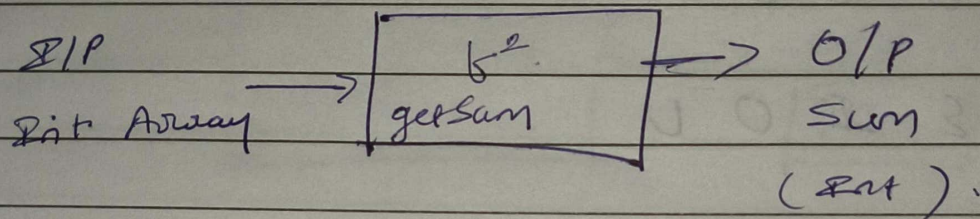 I/P
Int Array
fn
getSum
O/P
Sum
(Int).